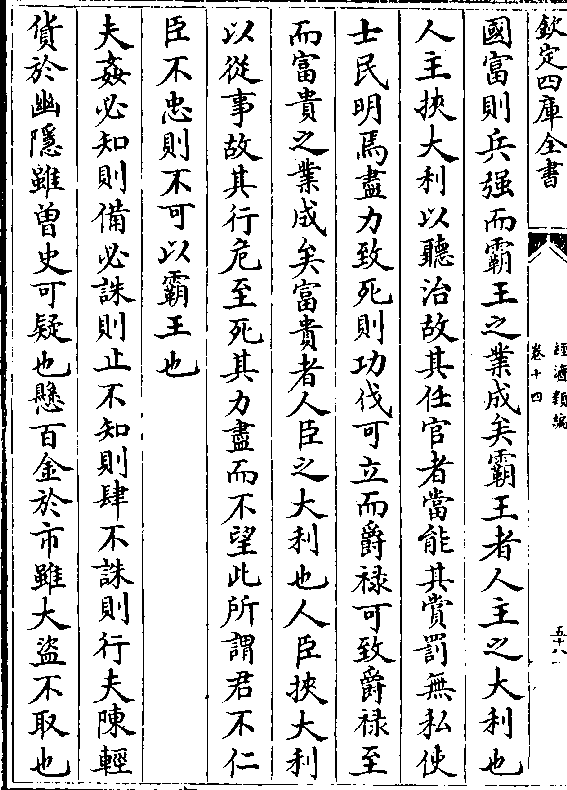 欽定四庫全書
經濟類編
卷十四
五十八
國富則兵强而霸王之業成矣霸王者人主之大利也
人主挾大利以聽治故其任官者當能其賞罰無私使
士民明焉盡力致死則功伐可立而爵祿可致爵祿至
而富貴之業成矣富貴者人臣之大利也人臣挾大利
以從事故其行危至死其力盡而不望此所謂君不仁
臣不忠則不可以霸王也
夫姦必知則備必誅則止不知則肆不誅則行夫陳輕
貨於幽隱雖曾史可疑也懸百金於市雖大盜不取也